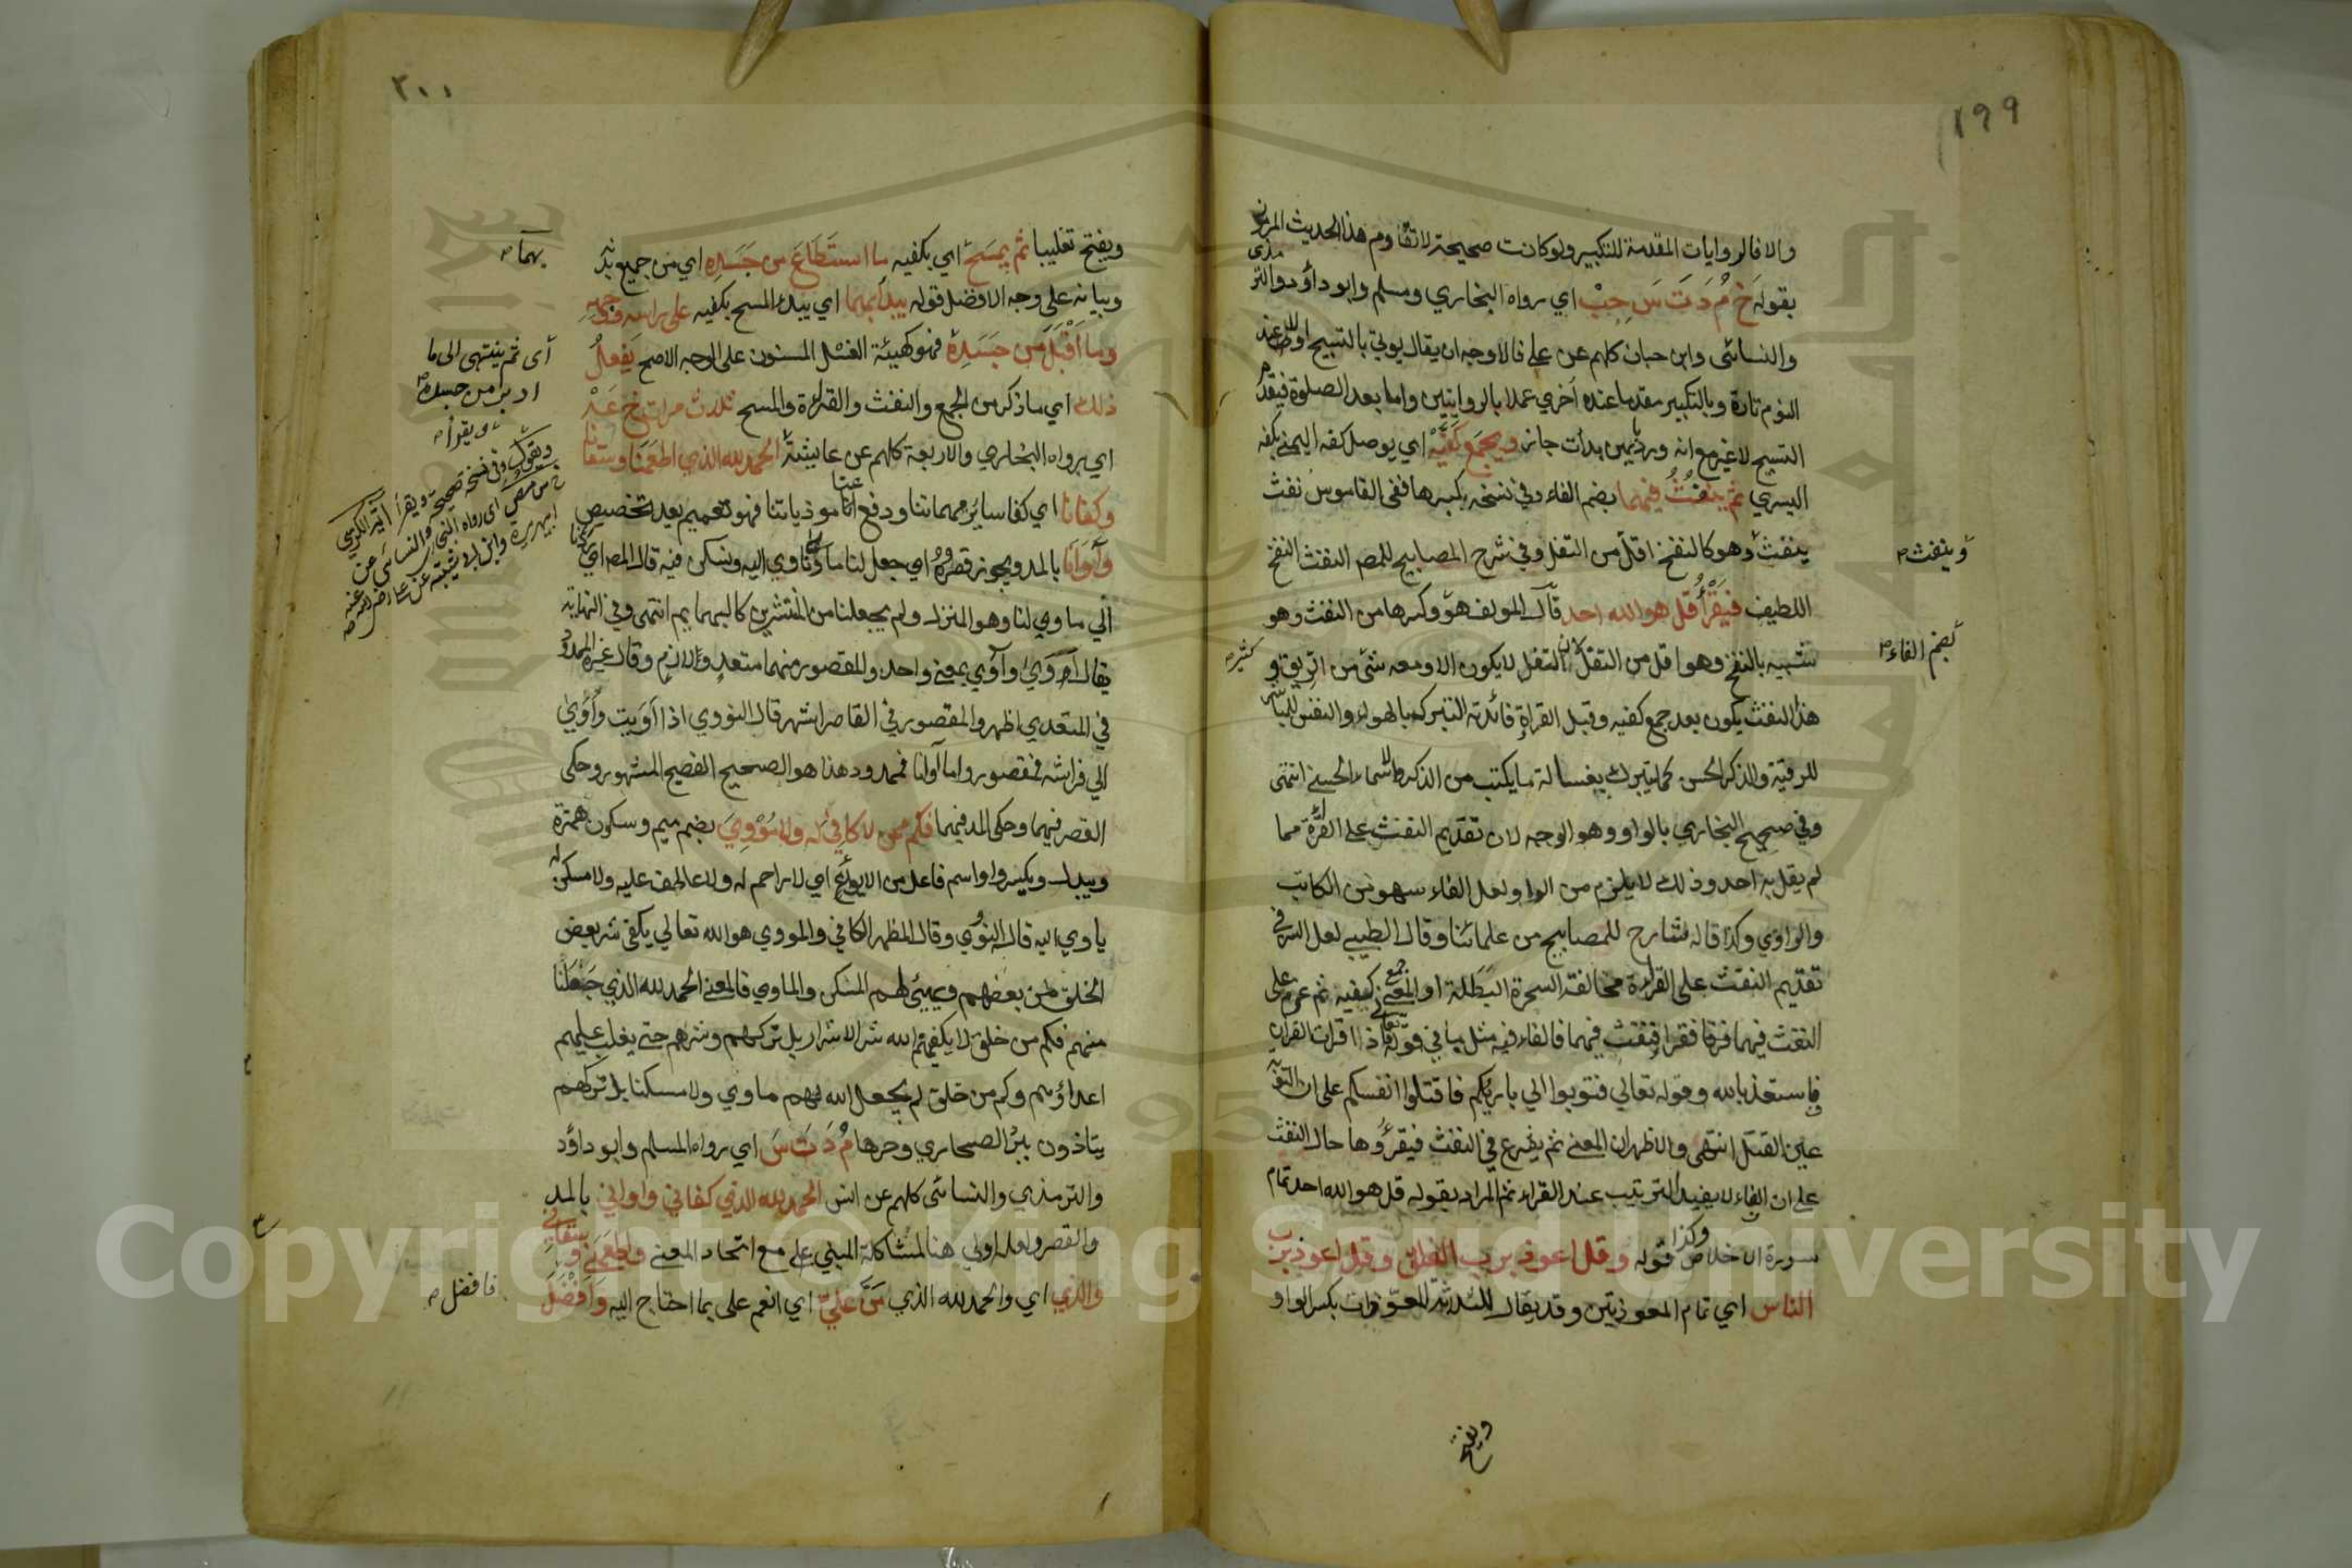 ١٩٩
والا فالروايات المقدمة للتكبير ولو كانت صحيحة لا تقاوم هذا الحديث المرموز
بقوله خ م د ت س حب اي رواه البخاري ومسلم وابو داؤد والترمذى
والنسائى وابن حبان كلهم عن على فالاوجه ان يقال يوتي بالتسبيح اولا عند
النوم تارة وبالتكبير مقدما عنده أخري عملا بالروايتين واما بعد الصلوة فيقدم
التسبيح لا غير مع انه ورد بايهن بدأت جاز ويجمع كفيه اي يوصل كفه اليمنى بكفه
اليسري ثم ينفث فيهما بضم الفاء وفي نسخة بكسرها ففى القاموس نفث
ينفث وهو كالنفخ اقل من التفل وفي شرح المصابيح للمص النفث النفخ
وينفث
اللطيف فيقرأ قل هو الله احد قال المولف هو وكسرها من النفث وهو
بضم الفاء
شبيه بالنفخ وهو اقل من التفل لان التفل لا يكون الا ومعه شئ من الريق و
كثير
هذا النفث يكون بعد جمع كفيه وقبل القراة فائدته التبرك بالهواء والنفس
للرقية والذكر الحسن كما يتبرك بغسالة ما يكتب من الذكر والاسماء الحسنى انتهى
وفي صحيح البخاري بالواو وهو الوجه لان تقديم النفث على القراة مما
لم يقل به احد وذلك لا يلزم من الواو ولعل الفاء سهو من الكاتب
والراوي وكذا قاله شارح للمصابيح من علمائنا وقال الطيبي لعل السر في
تقديم النفث على القراءة مخالفة السحرة البطلة او المعنى جمع كفيه ثم عزم على
النفث فيهما فقرا فنفث فيهما فالفاء فيه مثل ما في قوله تعالى فاذا قرات القران
فاستعذ بالله وقوله تعالي فتوبوا الي باريكم فاقتلوا انفسكم على ان التوبة
عين القتل انتهى والاظهر ان المعنى ثم يشرع في النفث فيقرؤها حال النفث
على ان الفاء لا يفيد الترتيب عند الفراء ثم المراد بقوله قل هو الله احد تمام
سورة الاخلاص وكذا قوله وقل اعوذ برب الفلق وقل اعوذ برب
الناس اي تمام المعوذتين وقد يقال للثلاثة المعوذات بكسر الواو
ويفتح
٢٠٠
ويفتح تغليبا ثم يمسح اي بكفيه ما استطاع من جسده اي من جميع بدنه
وبيانه على وجه الافضل قوله يبدأ بهما اي يبدء المسح بكفيه على راسه ووجهه
بهما
وما اقبل من جسده فهو كهيئة الغسل المسنون على الوجه الاصح يفعل
أى ثم ينتهى الى ما
ادبر من جسده
ذلك اي ما ذكر من الجمع والنفث والقراءة والمسح ثلاث مرات خ عه
ويقرأ
اي رواه البخاري والاربعة كلهم عن عايشة الحمد لله الذي اطعمنا وسقانا
ويقول وفى نسخة صحيحة ويقرأ اية الكرسي
اى رواه البخارى والنسائى عن
ابى هريرة وابن ابى شيبة عن على رضى الله عنه
وكفانا اي كفا سائر مهماتنا ودفع عنا موذياتنا فهو تعميم بعد تخصيص
وآوانا بالمد ويجوز قصره اي جعل لنا ماوى ناوي اليه ونسكن فيه قال المص اي ردنا
الي ماوي لنا وهو المنزل ولم يجعلنا من المنتشرين كالبهايم انتهى وفي النهاية
يقال اوي وآوي بمعنى واحد والمقصور منهما متعد ولازم وقال غيره الممدود
في المتعدي اظهر والمقصور في القاصر اشهر قال النووي اذا اويت واوي
الي فراشه فمقصور واما آوانا فممدود هذا هو الصحيح الفصيح المشهور وحكى
القصر فيهما وحكى المد فيهما فكم ممن لا كافي له ولا مؤوي بضم ميم وسكون همزة
ويبدل وبكسر واو اسم فاعل من الايواء اي لا راحم له ولا عاطف عليه ولا مسكن له
ياوي اليه قال النووي وقال المظهر الكافي والمووي هو الله تعالي يكفى شر بعض
الخلق من بعضهم ويهيئ لهم المسكن والماوي فالمعنى الحمد لله الذي جعلنا
منهم فكم من خلق لا يكفيهم الله شر الاشرار بل تركهم وشرهم حتى يغلب عليهم
اعداؤهم وكم من خلق لم يجعل الله لهم ماوي ولا مسكنا بل تركهم
يتاذون ببرد الصحاري وحرها م د ت س اي رواه المسلم وابو داؤد
والترمذي والنسائى كلهم عن انس الحمد لله الذي كفاني واواني بالمد
والقصر ولعله اولي هنا لمشاكلة المبني على مع اتحاد المعنى واطعمني وسقاني
والذي اي والحمد لله الذي من علي اي انعم على بما احتاج اليه وافضل
فافضل
Copyright © King Saud University